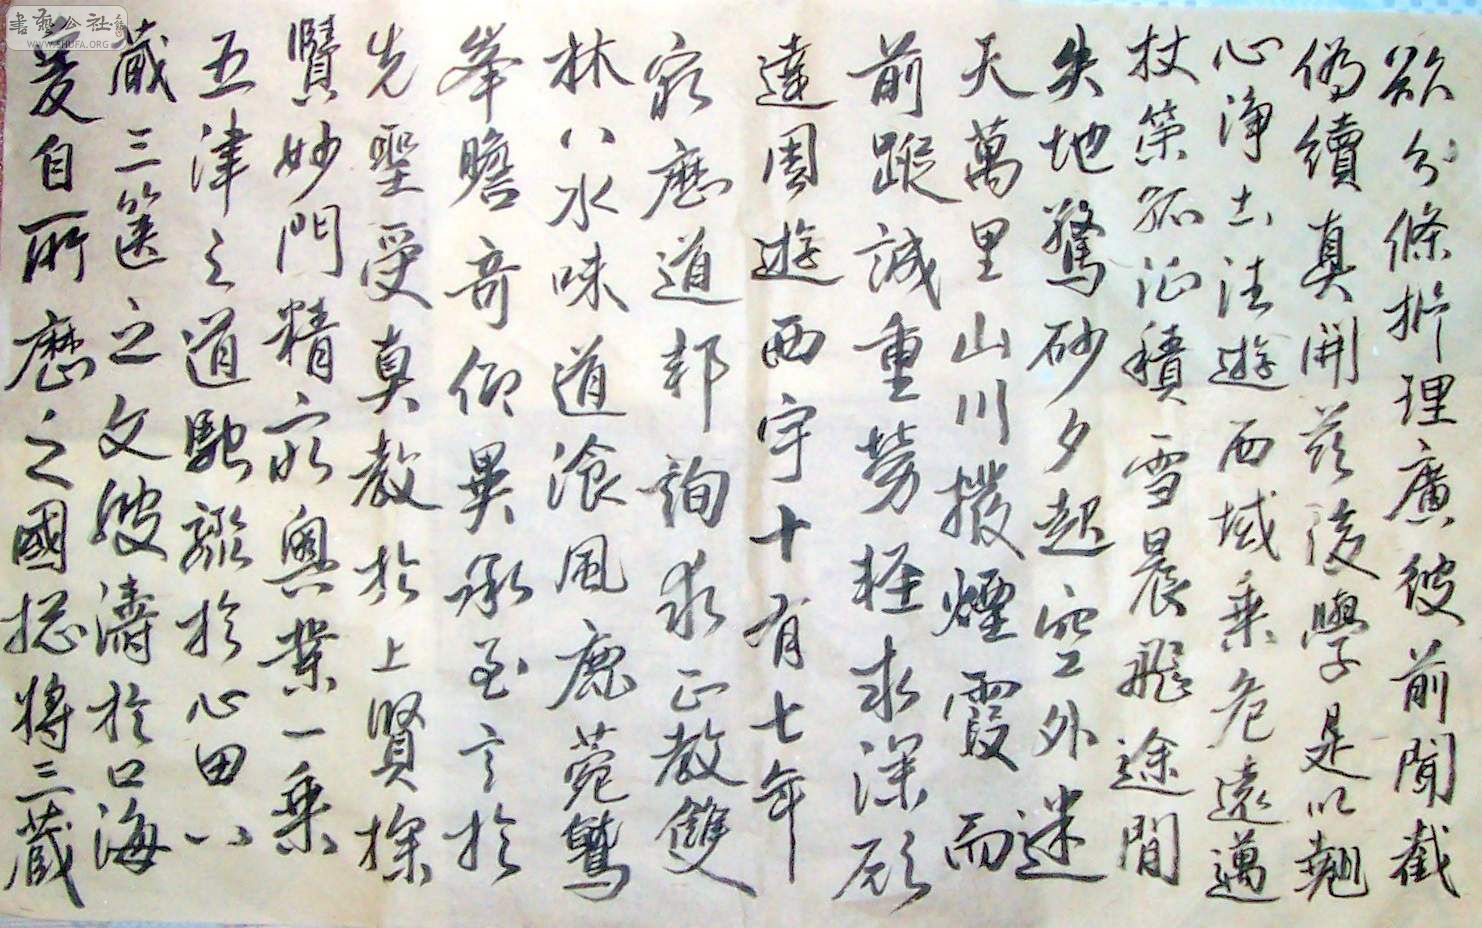 欲分條析理廣彼前聞截
偽續真開茲後學是以翹
心淨土法遊西域乘危遠邁
杖策孤征積雪晨飛途間
失地驚砂夕起空外迷
天萬里山川撥煙霞而
前蹤誠重勞輕求深願
達周遊西宇十有七年
窮歷道邦詢求正教雙
林八水味道飡風鹿菀鷲
峯瞻奇仰異承至言於
先聖受真教於上賢探
賾妙門精窮奧業一乘
五津之道馳驟於心田八
藏三篋之文波濤於口海
爰自所歷之國捴將三藏
書藝公社
WWW.SHUFA.ORG